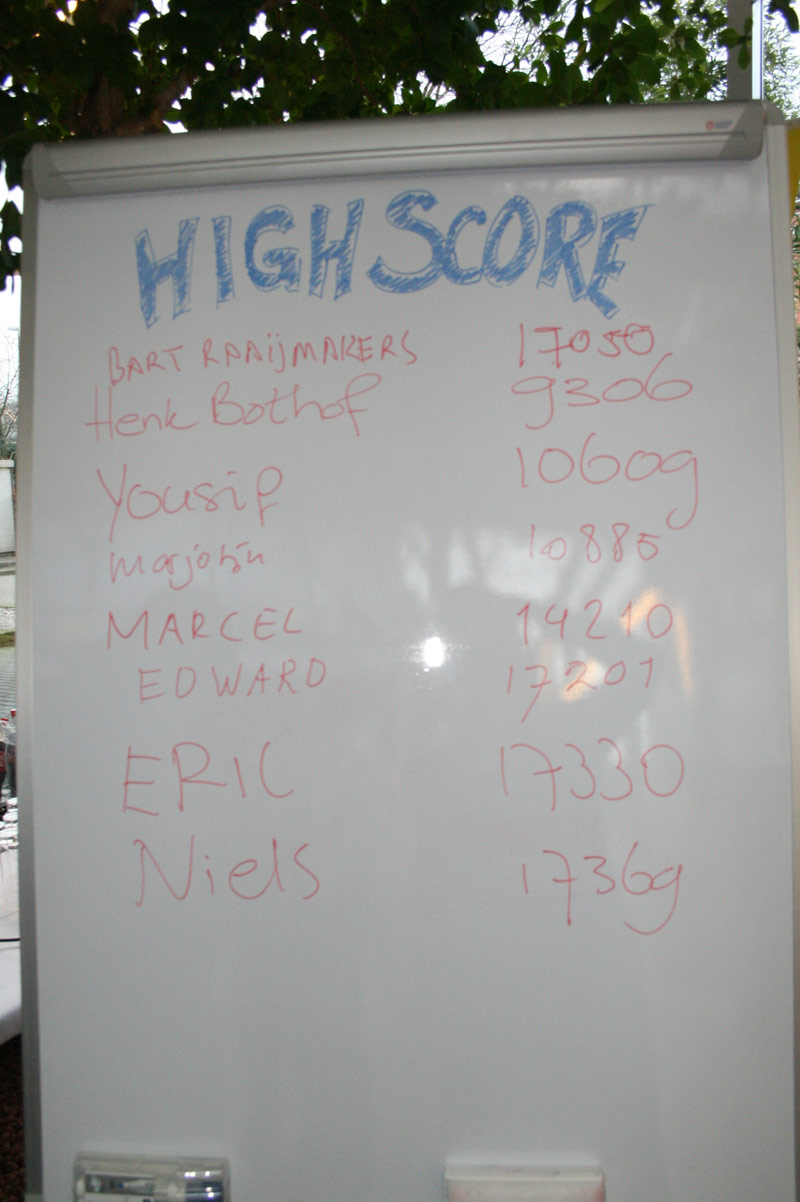 HIGHSCORE
BART RAAIJMAKERS 17050
Henk Bothof 9306
Yousif 10609
10885
MARCEL 14210
EDWARD 17201
ERIC 17330
Niels 17369